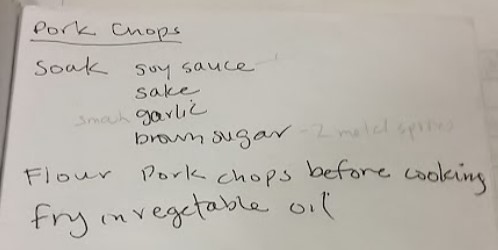 Pork Chops
Soak soy sauce
sake
smash garlic
brown sugar - 2 metal spoons
Flour Pork chops before cooking
fry in vegetable oil